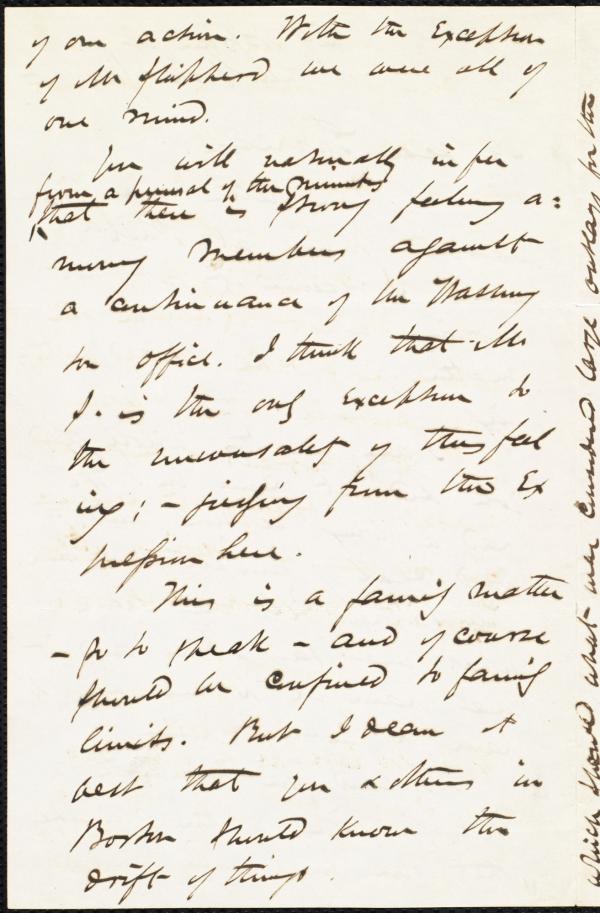 of our action. With the exception
of Mr Shepherd we were all of
one mind.
You will naturally infer
from a perusal of the minutes
that there is strong feeling a=
mong members against
a continuance of the Washing
ton office. I think that Mr
S. is the only exception to
the universality of this feel
ing; - judging from the ex
pression here.
This is a family matter
- so to speak - and of course
should be confined to family
limits. But I deem it
best that you & others in
Boston should know the
drift of things.
which showed what was considered large outlay for the